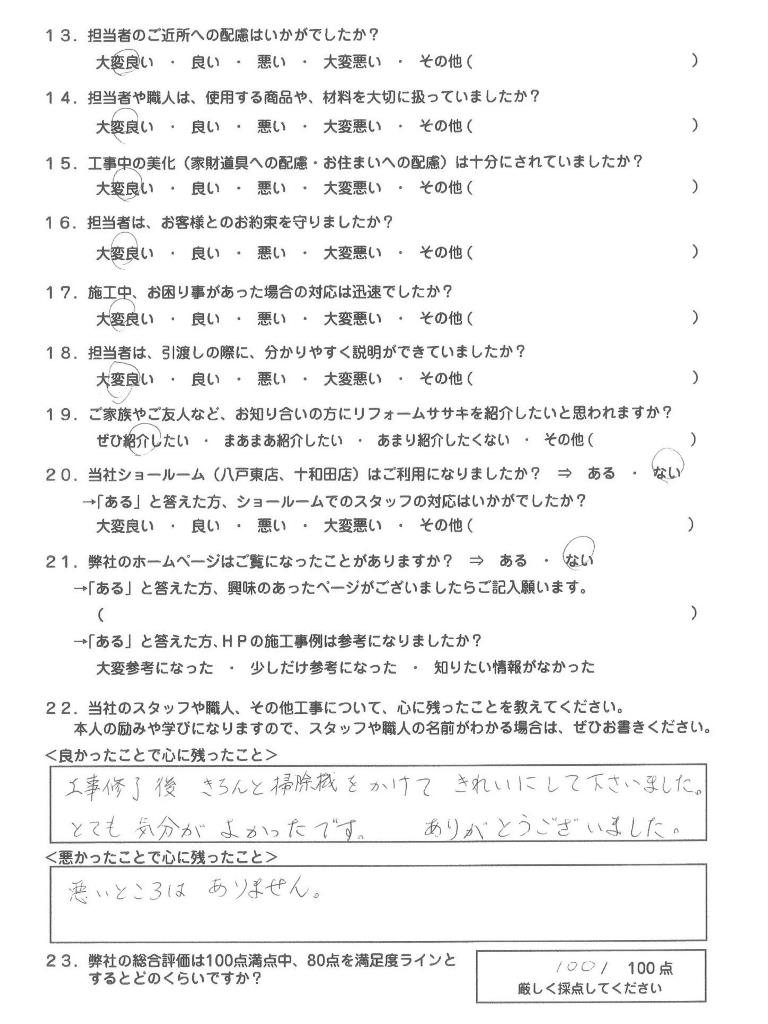 13．担当者のご近所への配慮はいかがでしたか？
大変良い ・ 良い ・ 悪い ・ 大変悪い ・ その他（ ）
14．担当者や職人は、使用する商品や、材料を大切に扱っていましたか？
大変良い ・ 良い ・ 悪い ・ 大変悪い ・ その他（ ）
15．工事中の美化（家財道具への配慮・お住まいへの配慮）は十分にされていましたか？
大変良い ・ 良い ・ 悪い ・ 大変悪い ・ その他（ ）
16．担当者は、お客様とのお約束を守りましたか？
大変良い ・ 良い ・ 悪い ・ 大変悪い ・ その他（ ）
17．施工中、お困り事があった場合の対応は迅速でしたか？
大変良い ・ 良い ・ 悪い ・ 大変悪い ・ その他（ ）
18．担当者は、引渡しの際に、分かりやすく説明ができていましたか？
大変良い ・ 良い ・ 悪い ・ 大変悪い ・ その他（ ）
19．ご家族やご友人など、お知り合いの方にリフォームササキを紹介したいと思われますか？
ぜひ紹介したい ・ まあまあ紹介したい ・ あまり紹介したくない ・ その他（ ）
20．当社ショールーム（八戸東店、十和田店）はご利用になりましたか？ ⇒ ある ・ ない
→「ある」と答えた方、ショールームでのスタッフの対応はいかがでしたか？
大変良い ・ 良い ・ 悪い ・ 大変悪い ・ その他（ ）
21．弊社のホームページはご覧になったことがありますか？ ⇒ ある ・ ない
→「ある」と答えた方、興味のあったページがございましたらご記入願います。
（ ）
→「ある」と答えた方、ＨＰの施工事例は参考になりましたか？
大変参考になった ・ 少しだけ参考になった ・ 知りたい情報がなかった
22．当社のスタッフや職人、その他工事について、心に残ったことを教えてください。
本人の励みや学びになりますので、スタッフや職人の名前がわかる場合は、ぜひお書きください。
＜良かったことで心に残ったこと＞
工事修了後 きちんと掃除機をかけて きれいにして下さいました。
とても 気分が よかったです。 ありがとうございました。
＜悪かったことで心に残ったこと＞
悪いところは ありません。
23．弊社の総合評価は100点満点中、80点を満足度ラインと
するとどのくらいですか？
100/ 100点
厳しく採点してください